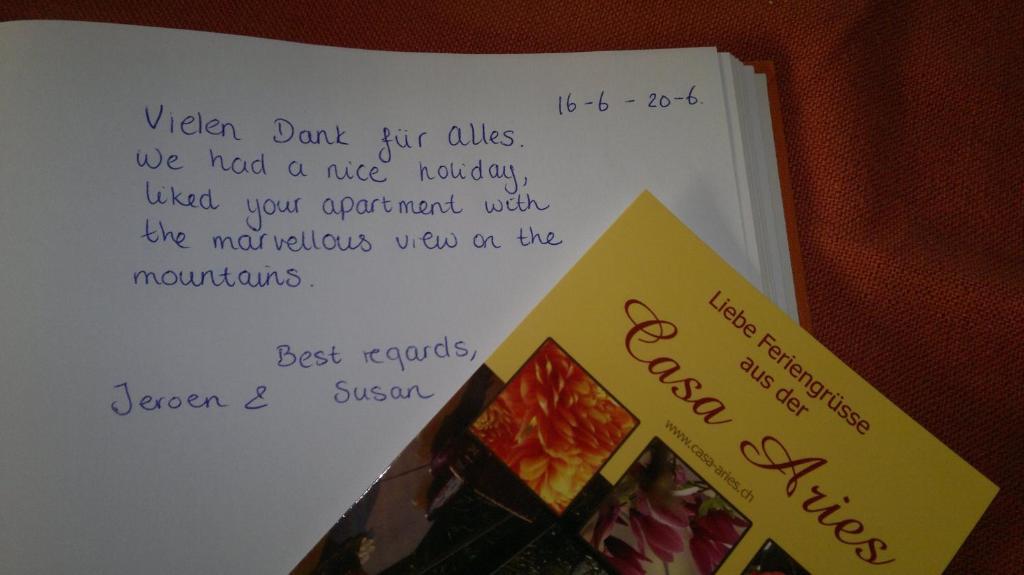 16-6 - 20-6.
Vielen Dank für alles.
We had a nice holiday,
liked your apartment with
the marvellous view on the
mountains.
Best regards,
Jeroen & Susan
Liebe Feriengrüsse
aus der
Casa Aries
www.casa-aries.ch